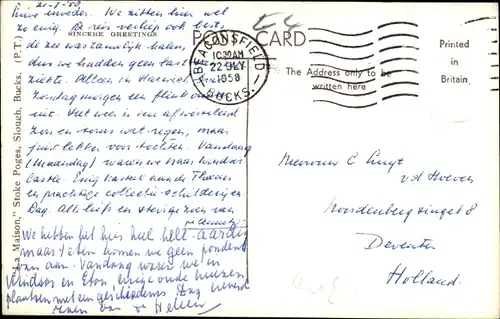 21-7-58
Lieve moeder. We zitten hier wel
zo enig. De reis verliep ook best,
de zee was tamelijk kalm,
dus we hadden geen last
ziekte. Alleen in Harwich
Zondagmorgen een flink onweer
uit. Het weer is nu afwisselend
zon en soms wat regen, maar
juist lekker voor tochten. Vandaag
(Maandag) waren we naar Windsor
Castle. Enig kasteel aan de Theems
en prachtige collectie schilderijen.
Dag. Alle liefs en stevige zoen van
We hebben het hier heel
maar eten kunnen we geen ponden
van aan. Vandaag waren we in
Windsor en Eton, enige oude huizen,
plaatsen met een geschiedenis. Dag
zoenen van Heleen
SINCERE GREETINGS
"La Maison," Stoke Poges, Slough, Bucks. (P.T.)
POST CARD
BEACONSFIELD
10.30AM
22 JLY
1958
BUCKS.
The Address only to be
written here
Printed
in
Britain.
Mevrouw C
v.d. Hoeven
Noordenbergsingel 8
Deventer
Holland.